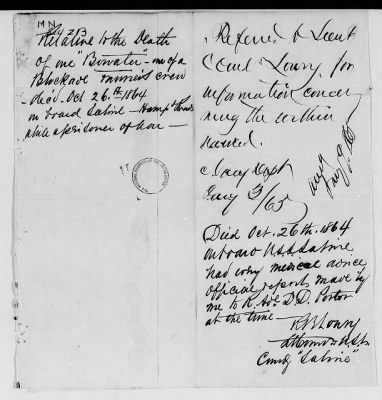 MN
Relative to the Death
of one "Bowater" one of a
Blockade runners crew
died Oct 26.th 1864
on board Sabine - Hamp. Roads
while a prisoner of war -
Referred to Lieut
Comd Lowry, for
information concer
ning the within
named.
Navy Dept
Jany 3/65
Died Oct. 26th. 1864
on board U.S.S. Sabine
had every medical advice
official report made by
me to R. Adl D. D. Porter
at the time -
R B Lowry
Lt Comdr U.S.N.
Comdg "Sabine"